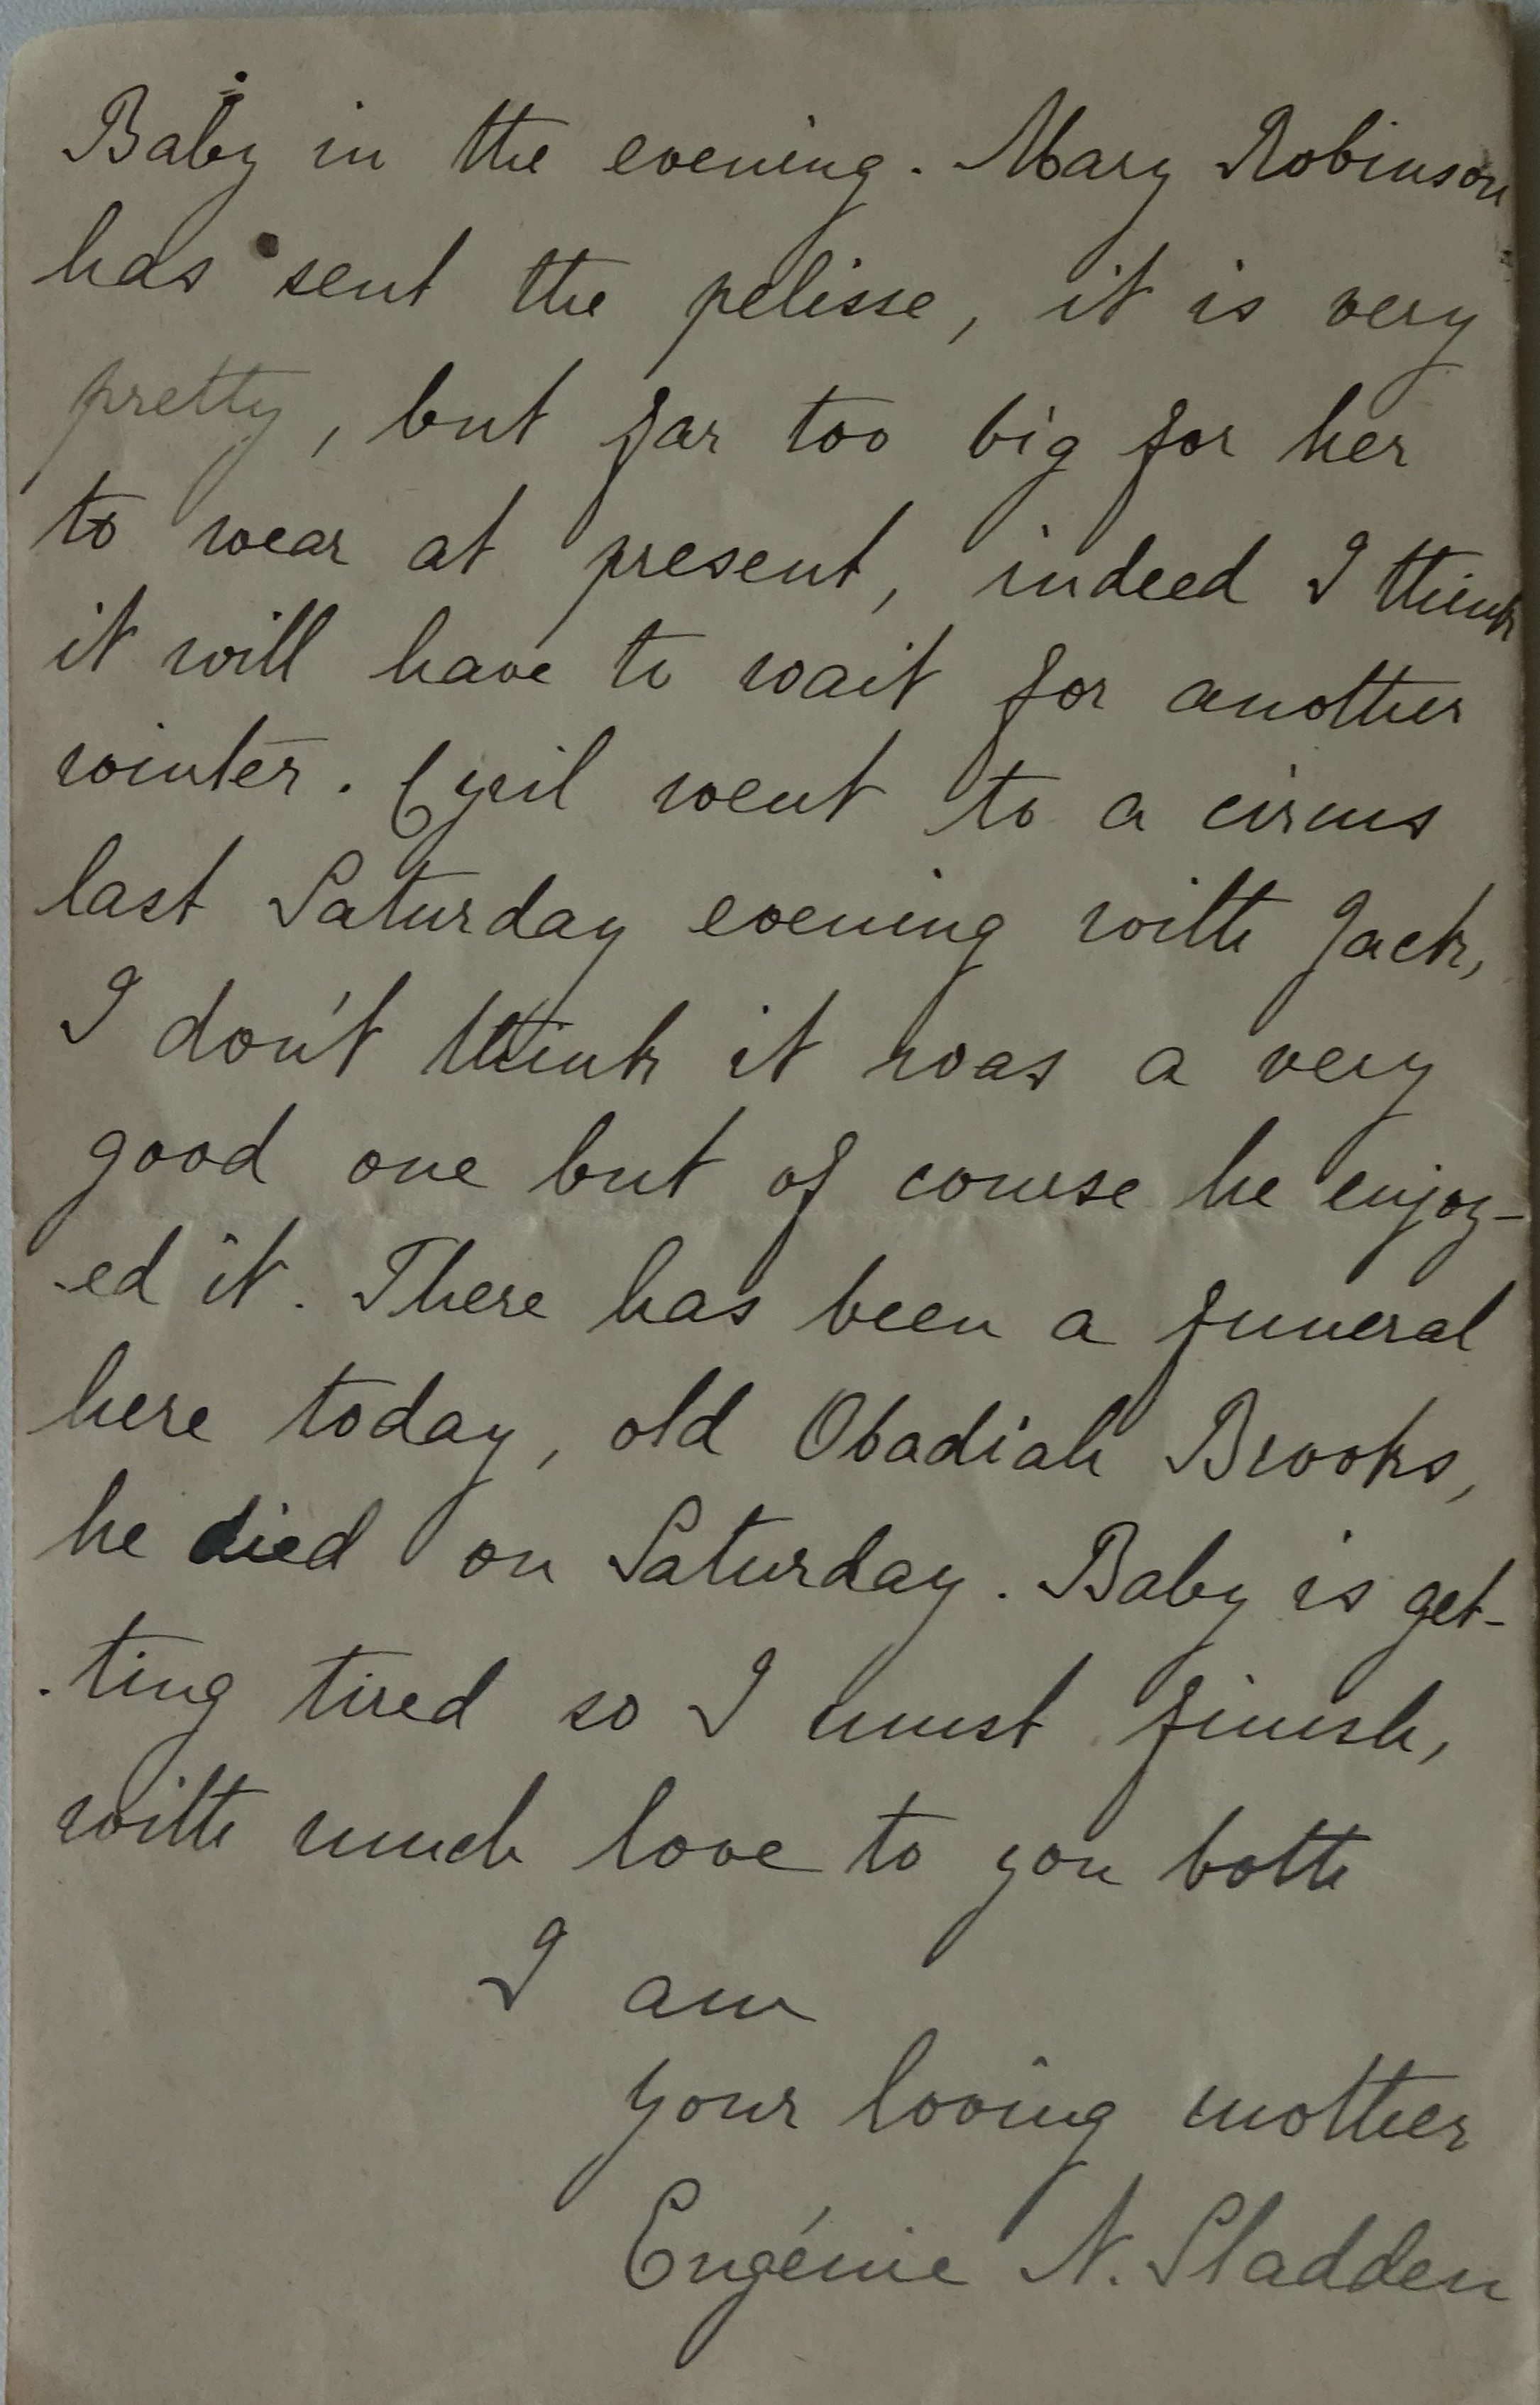 Baby in the evening. Mary Robinson
has sent the pelisse, it is very
pretty, but far too big for her
to wear at present, indeed I think
it will have to wait for another
winter. Cyril went to a circus
last Saturday evening with Jack,
I don't think it was a very
good one but of course he enjoy-
-ed it. There has been a funeral
here today, old Obadiah Brooks,
he died on Saturday. Baby is get-
-ting tired so I must finish,
with much love to you both
I am
your loving mother
Eugénie N. Sladden